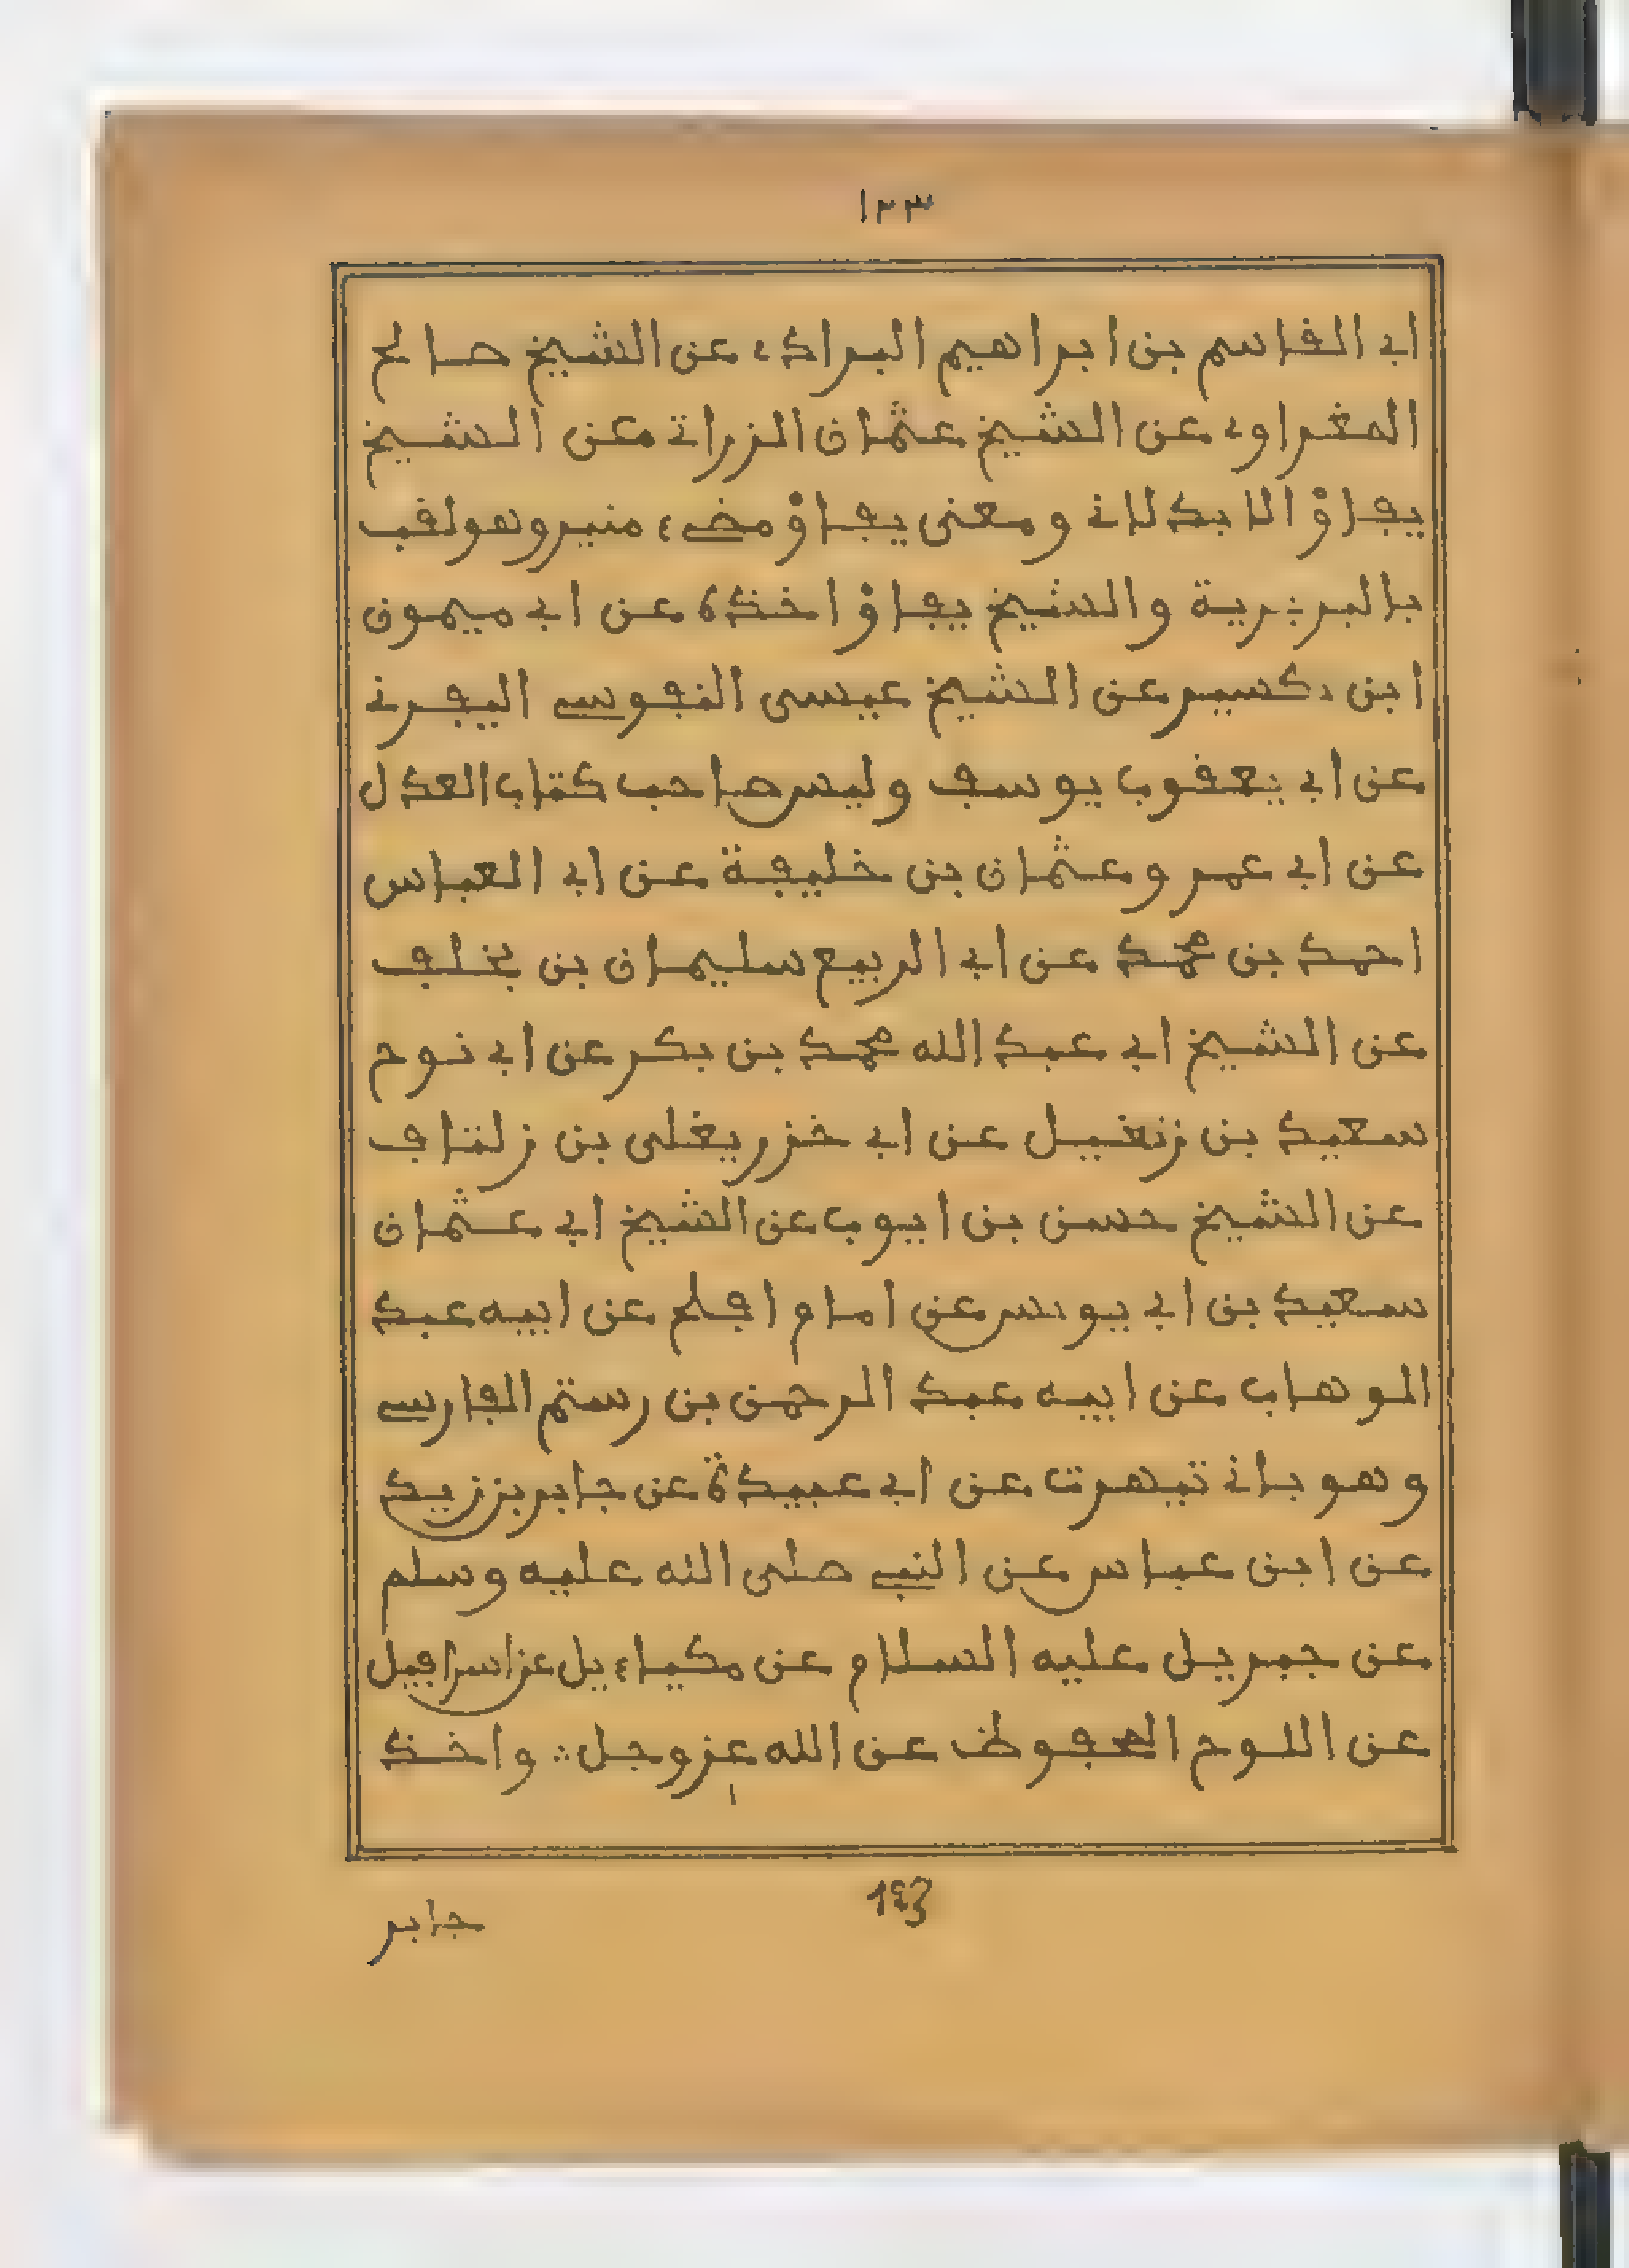 ١٢٣
ابي القاسم بن ابراهيم البرادي عن الشيخ صالح
المغراوي عن الشيخ عثمان المزراتي وعن الشيخ
يفاوْ الابدلاني ومعنى يفاوْ مضيء منير وهو لقب
بالبربرية والشيخ يفاوْ اخذه عن ابي ميمون
ابن دكسير عن الشيخ عيسى النفوسي اليفرني
عن ابي يعقوب يوسف وليس صاحب كتاب العدل
عن ابي عمر وعثمان بن خليفة عن ابي العباس
احمد بن محمد عن ابي الربيع سليمان بن يخلف
عن الشيخ ابي عبد الله محمد بن بكر عن ابي نوح
سعيد بن زنغيل عن ابي خزر يغلى بن زلتاف
عن الشيخ حسن بن ايوب عن الشيخ ابي عثمان
سعيد بن ابي يونس عن امام افلح عن ابيه عبد
الموهاب عن ابيه عبد الرحمن بن رستم الفارسي
وهو باني تيهرت عن ابي عبيدة عن جابر بن زيد
عن ابن عباس عن النبي صلى الله عليه وسلم
عن جبريل عليه السلام عن مكياءيل عن اسرافيل
عن اللوح المحفوظ عن الله عز وجل ∴ واخذ
123
جابر